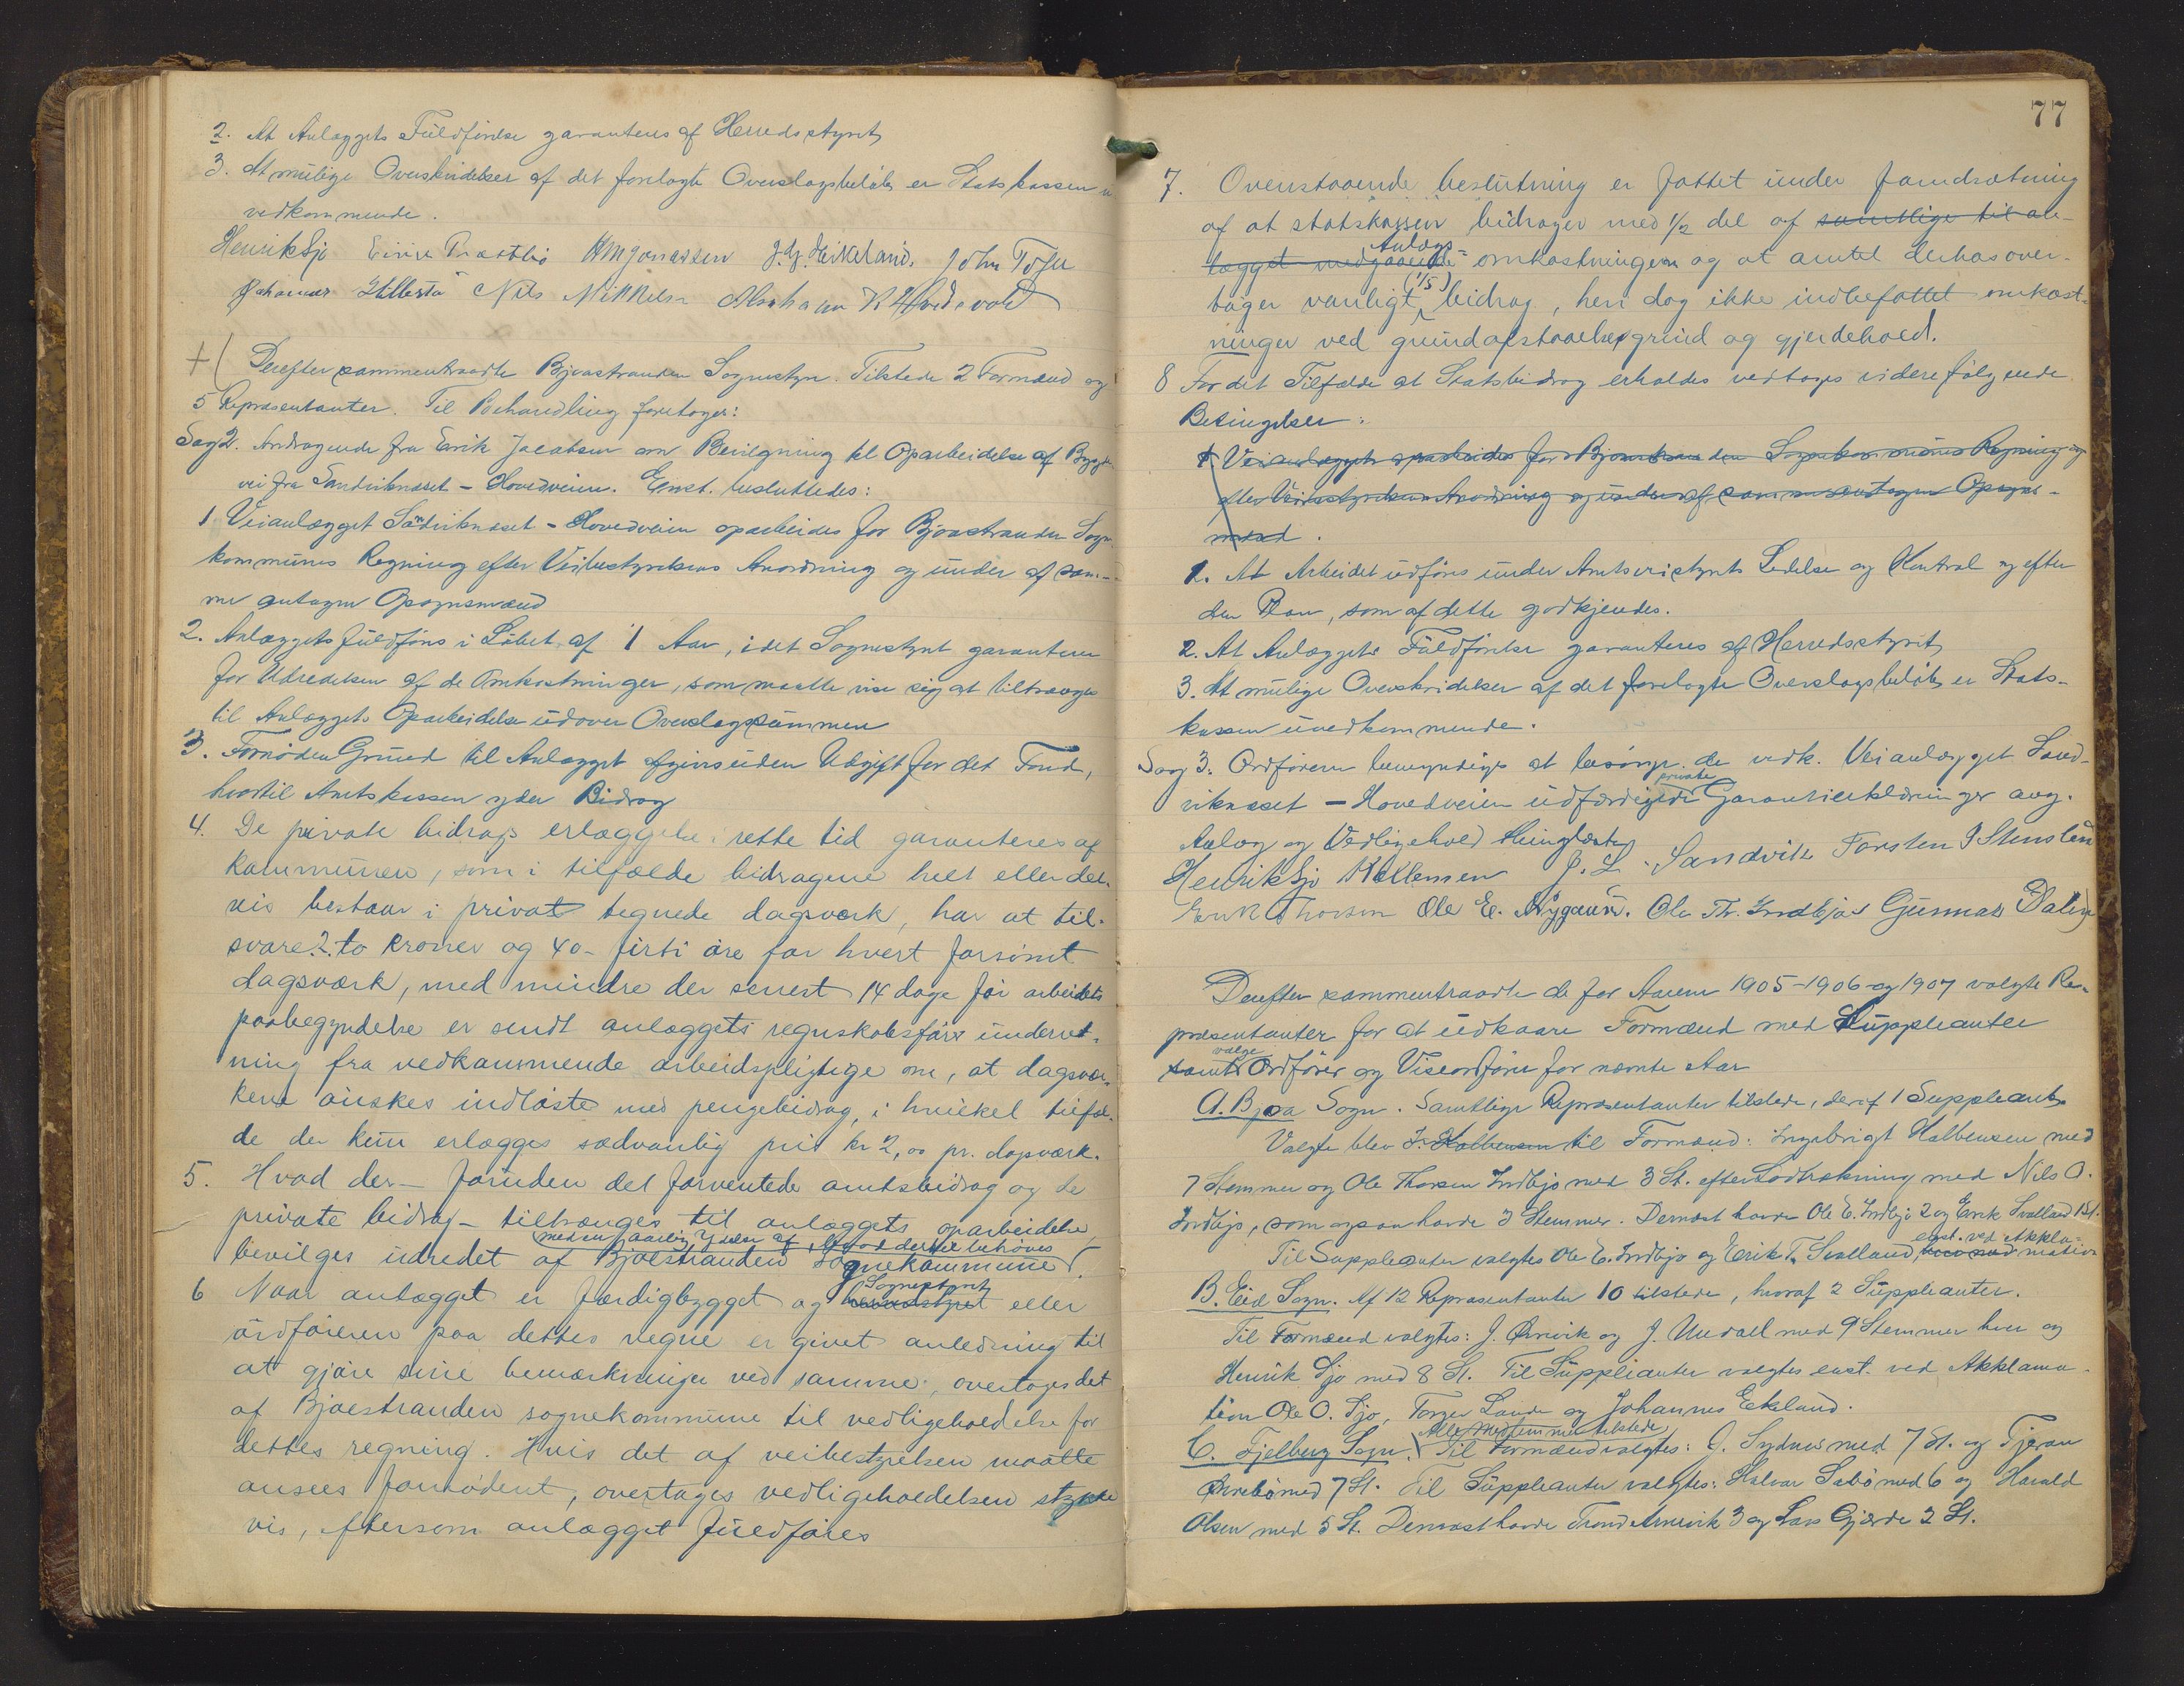 2. At Anlæggets Fuldførelse garanteres af Herredsstyret
3. At mulige Overskridelser af det forelagte Overslagsbeløb er Statskassen u
vedkommende.
Henrik Sjo HMJonassen J. G. Heikeland. John Tofte
Nils Nikkelsen Abraham K Hvidevold
+( Derefter sammentraadte Bjoastranden Sognestyre. Tilstede 2 Formænd og
5 Repræsentanter. Til Behandling foretoges:
Sag 2. Andragende fra Erik Jacobsen om Bevilgning til Oparbeidelse af Bygde
vei fra Sandviknæset - Hovedveien. Enst. besluttedes:
1 Veianlægget Sandviknæset - Hovedveien oparbeides for Bjoastranden Sogne
kommunes Regning efter Veibestyrelsens Anordning og under af sam-
me antagen Opsynsmænd
2. Anlægget fuldføres i Løbet af 1 Aar, idet Sognestyret garanterer
for Udredelsen af de Omkostninger, som maatte vise sig at tiltrænges
til Anlæggets Oparbeidelse udover Overslagssummen
3. Fornøden Grund til Anlægget afgives uden Udgift for det Fond,
hvortil Amtskassen yder Bidrag
4. De private bidrags erlæggelse i rette tid garanteres af
kommunen, som i tilfælde bidragene helt eller del-
vis bestaar i privat tegnede dagsværk, har at til-
svare 2. to kroner og 40 - firti øre for hvert forsømt
dagsværk, med mindre der senest 14 dage før arbeidets
paabegyndelse er sendt anlæggets regnskabsfører underret-
ning fra vedkommende arbeidspligtige om, at dagsvær-
kene ønskes indløste med pengebidrag, i hvilket tilfæl-
de der kun erlægges sædvanlig pris kr 2,00 pr. dagsværk.
5. Hvad der - foruden det forventede amtsbidrag og de
private bidrag - tiltrænges til anlæggets oparbeidelse,
med en aarlig Ydelse af dertil behøves
bevilges udredet af Bjoestranden sognekommune
Sognestyret
6 Naar anlægget er færdigbygget og herredsstyret eller
ordføreren paa dettes vegne er givet anledning til
at gjøre sine bemærkninger ved samme, overtages det
af Bjoestranden sognekommune til vedligeholdelse for
dettes regning. Hvis det af veibestyrelsen maatte
ansees fornødent, overtages vedligeholdelsen stykke
vis, eftersom anlægget fuldføres
77
7. Ovenstaaende beslutning er fattet under forudsætning
af at statskassen bidrager med 1/2 del af samtlige til an-
Anlægs-
lægget medgaaende omkostninger og at amtet derhos over-
(1/5)
tager vanligt bidrag, heri dog ikke indbefattet omkost-
ninger ved grundafstaaelse, grind og gjerdehold.
8 For det Tilfælde at Statsbidrag erholdes vedtages videre følgende
Betingelser:
1 Veianlægget oparbeides for Bjoastranden Sognekommunes Regning og
efter Veibestyrelsens Anordning og under af samme antagen Opsyns-
mænd.
1. At Arbeidet udføres under Amtsveistyrets Ledelse og Kontrol og efter
den Plan, som af dette godkjendes.
2. At Anlæggets Fuldførelse garanteres af Herredsstyret
3. At mulige Overskridelser af det forelagte Overslagsbeløb er Stats-
kassen uvedkommende.
Sag 3. Ordføreren bemyndiges at besørge de vedk. Veianlægget Sand-
private
viknæset - Hovedveien udfærdigede Garantierklæringer ang.
Anlæg og Vedligehold thinglæste
Henrik Sjo J. L. Sandvik Torsten J. Stensland
Erik Thorsen Ole E. Nygaard. Ole Th. Indbjo Gunnar Dale
Derefter sammentraadte de for Aarene 1905-1906 og 1907 valgte Re-
præsentanter for at udkaare Formænd med Suppleanter
vælge
samt Ordfører og Viseordfører for nævnte Aar
A. Bjoa Sogn. Samtlige Repræsentanter tilstede, deraf 1 Suppleant.
Valgte blev I. Halbensen til Formænd: Ingebrigt Halbensen med
7 Stemmer og Ole Thorsen Indbjo med 3 St. efter Lodtrækning med Nils O.
Indbjo, som ogsaa havde 3 Stemmer. Dernæst havde Ole E. Indbjo 2 og Erik Svolland 1 St.
enst. ved Akkla-
Til Suppleanter valgtes Ole E. Indbjo og Erik T. Svolland, mation
B. Eid Sogn. Af 12 Repræsentanter 10 tilstede, hvoraf 2 Suppleanter.
Til Formænd valgtes: J. Ørnvik og J. Undall med 9 Stemmer hver og
Henrik Sjo med 8 St. Til Suppleanter valgtes enst. ved Akklama-
tion Ole O. Sjo, Torger Lande og Johannes Ekland.
Alle Medlemmer tilstede
C. Fjelberg Sogn. Til Formænd valgtes: O. Sydnes med 7 St. og Tjeran
Ørrebø med 7 St. Til Suppleanter valgtes: Halvar Sæbø med 6 og Harald
Olsen med 5 St. Dernæst havde Trond Arnevik 3 og Lars Gjerde 2 St.